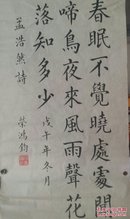 春眠不覺曉處處聞
啼鳥夜來風雨聲花
落知多少 戊午年冬月
孟浩然詩 鴻鈞